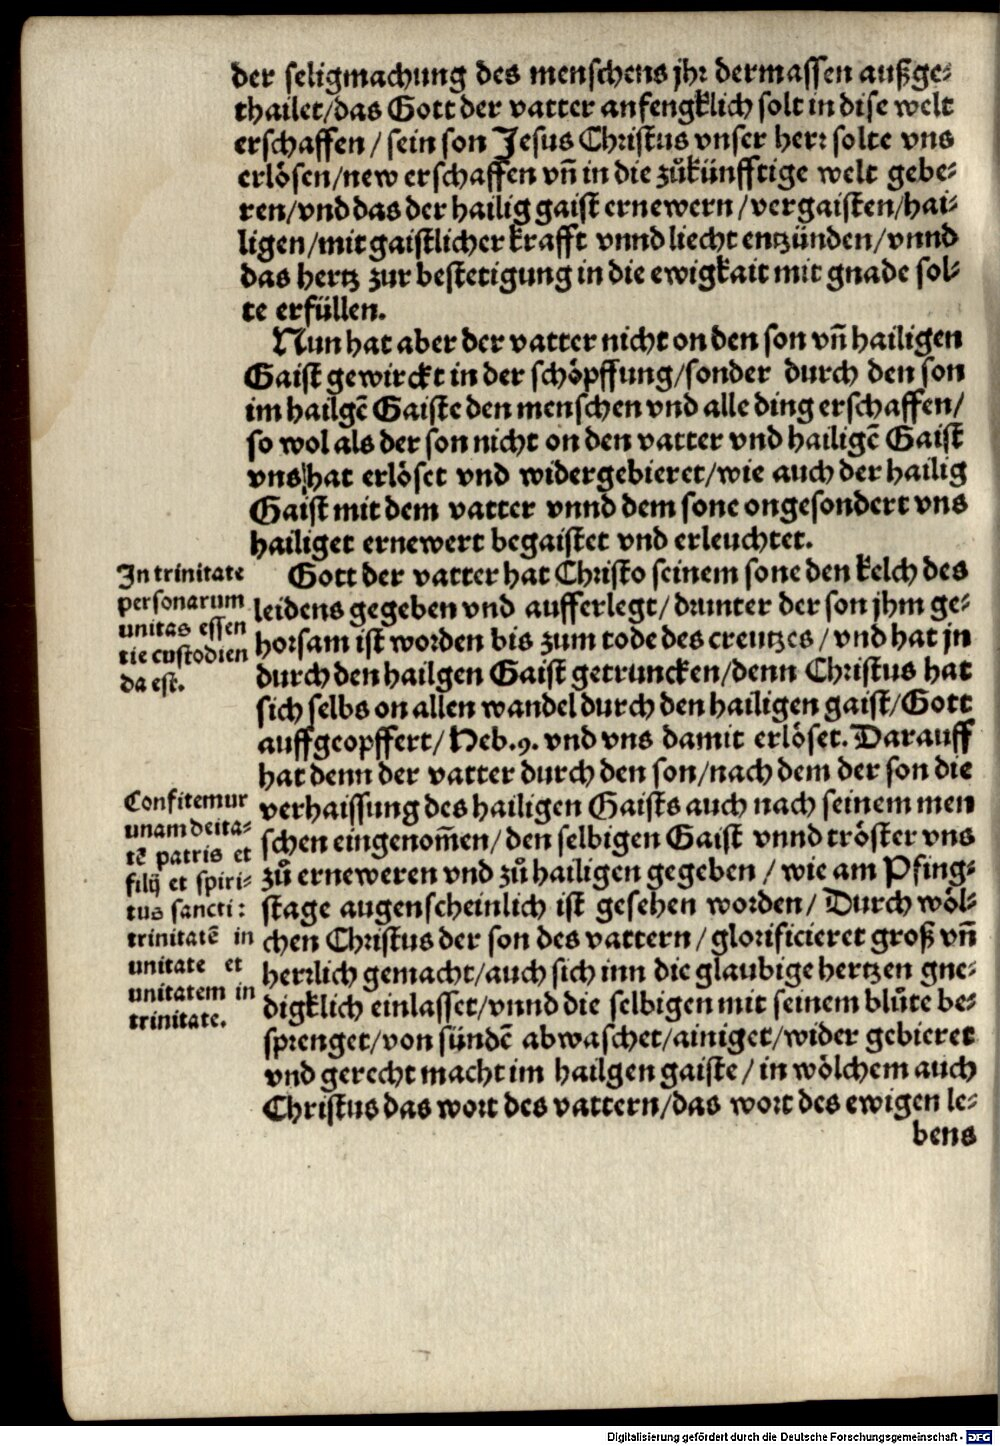 der seligmachung des menschens jhr dermassen außge⸗
thailet/das Gott der vatter anfengklich solt in dise welt
erschaffen / sein son Jesus Christus vnser herr solte vns
erlösen/new erschaffen vñ in die zůkünfftige welt gebe⸗
ren/vnd das der hailig gaist ernewern /vergaisten/hai⸗
ligen/mit gaistlicher krafft vnnd liecht entzünden/vnnd
das hertz zur bestetigung in die ewigkait mit gnade sol⸗
te erfüllen.
Nun hat aber der vatter nicht on den son vñ hailigen
Gaist gewirckt in der schöpffung/sonder durch den son
im hailgẽ Gaiste den menschen vnd alle ding erschaffen/
so wol als der son nicht on den vatter vnd hailigẽ Gaist
vns hat erlöset vnd widergebieret/wie auch der hailig
Gaist mit dem vatter vnnd dem sone ongesondert vns
hailiget ernewert begaistet vnd erleuchtet.
Gott der vatter hat Christo seinem sone den kelch des
leidens gegeben vnd aufferlegt/ drunter der son jhm ge⸗
horsam ist worden bis zum tode des creutzes / vnd hat jn
durch den hailgen Gaist getruncken/denn Christus hat
sich selbs on allen wandel durch den hailigen gaist/Gott
auffgeopffert/ Heb.9. vnd vns damit erlöset. Darauff
hat denn der vatter durch den son/nach dem der son die
verhaissung des hailigen Gaists auch nach seinem men
schen eingenom̃en/ den selbigen Gaist vnnd tröster vns
zů erneweren vnd zů hailigen gegeben / wie am Pfing⸗
stage augenscheinlich ist gesehen worden/ Durch wöl⸗
chen Christus der son des vattern / glorificieret groß vñ
herrlich gemacht/auch sich inn die glaubige hertzen gne⸗
digklich einlasset/vnnd die selbigen mit seinem blůte be⸗
sprenget/von sündẽ abwaschet/ainiget/wider gebieret
vnd gerecht macht im hailgen gaiste / in wölchem auch
Christus das wort des vattern/das wort des ewigen le⸗
bens
In trinitate
personarum
unitas essen
tie custodien
da est.
Confitemur
unam deita⸗
tẽ patris et
filij et spiri⸗
tus sancti:
trinitatẽ in
unitate et
unitatem in
trinitate.
Digitalisierung gefördert durch die Deutsche Forschungsgemeinschaft - DFG